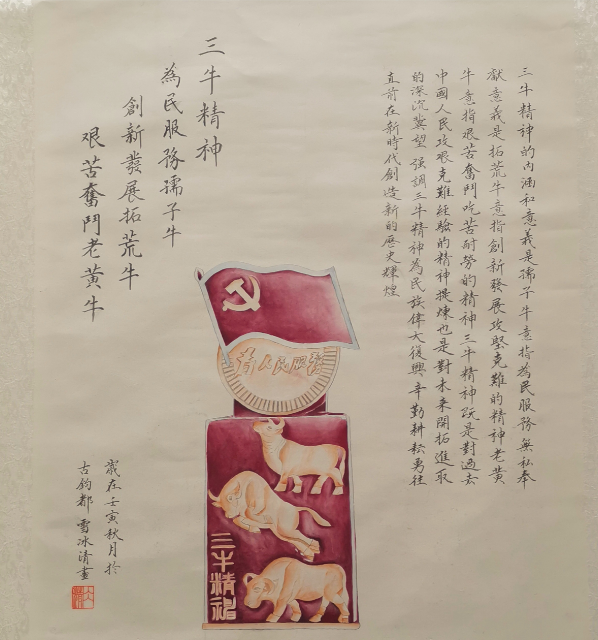 三牛精神的內涵和意義是孺子牛意指為民服務無私奉
獻意義是拓荒牛意指創新發展攻堅克難的精神老黃
牛意指艰苦奮鬥吃苦耐勞的精神三牛精神既是對過去
中國人民攻艰克難經驗的精神提煉也是對未来開拓進取
的深沉冀望 强調三牛精神為民族偉大復興辛勤耕耘勇往
直前在新時代創造新的歷史輝煌
三牛精神
為民服務孺子牛
創新發展拓荒牛
艰苦奮鬥老黃牛
为人民服務
三牛精神
歲在壬寅秋月於
古鈞都 雪冰清畫